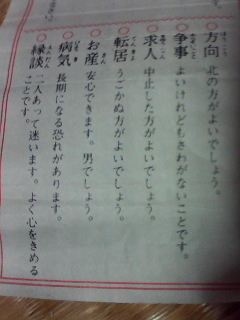 ○方向 北の方がよいでしょう。
○争事 よいけれどもさわがないことです。
○求人 中止した方がよいでしょう。
○転居 うごかぬ方がよいでしょう。
○お産 安心できます。男でしょう。
○病気 長期になる恐れがあります。
○縁談 二人あって迷います。よく心をきめる
ことです。